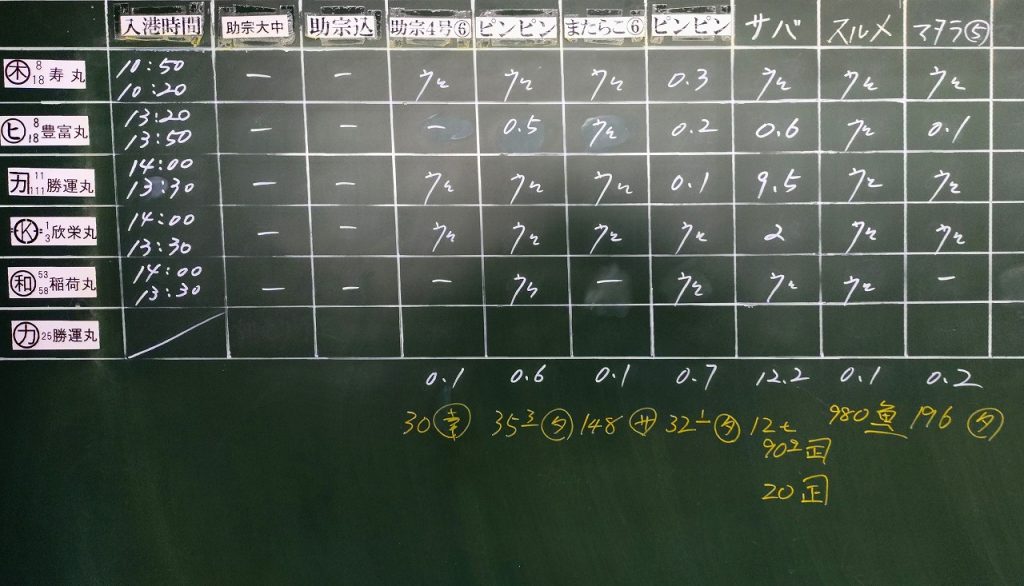 入港時間 助宗大中 助宗込 助宗4号⑥ ピンピン またらこ⑥ ピンピン サバ スルメ マダラ⑤
㊍ 8 18 寿丸 10:50 10:20 ー ー ウt ウt ウt 0.3 ウt ウt ウt
ヒ 8 18 豊富丸 13:20 13:50 ー ー ー 0.5 ウt 0.2 0.6 ウt 0.1
カ 11 111 勝運丸 14:00 13:30 ー ー ウt ウt ウt 0.1 9.5 ウt ウt
K 1 3 欣栄丸 14:00 13:30 ー ー ウt ウt ウt ウt 2 ウt ウt
和 53 58 稲荷丸 14:00 13:30 ー ー ー ウt ー ウt ウt ウt ー
カ 25 勝運丸
0.1 0.6 0.1 0.7 12.2 0.1 0.2
30 35 3 タ 148 サ 32 1 タ 12t 980 魚 196 タ
902 正
20 正